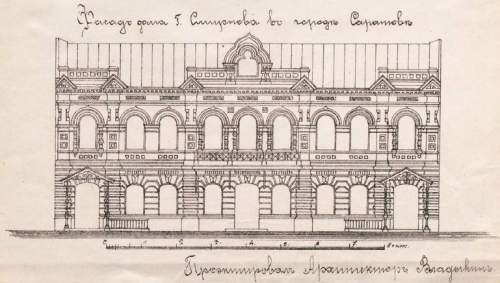 Фасадъ дома Г. Смирнова въ городѣ Саратовѣ
Проектировал Архитекторъ Владыкинъ